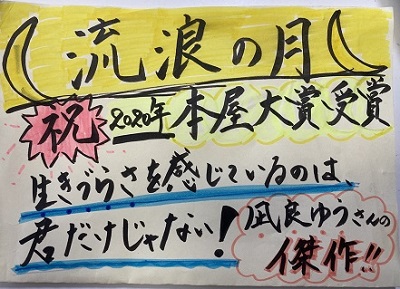 流浪の月
祝 2020年 本屋大賞受賞
生きづらさを感じているのは、
君だけじゃない!
凪良ゆうさんの
傑作!!